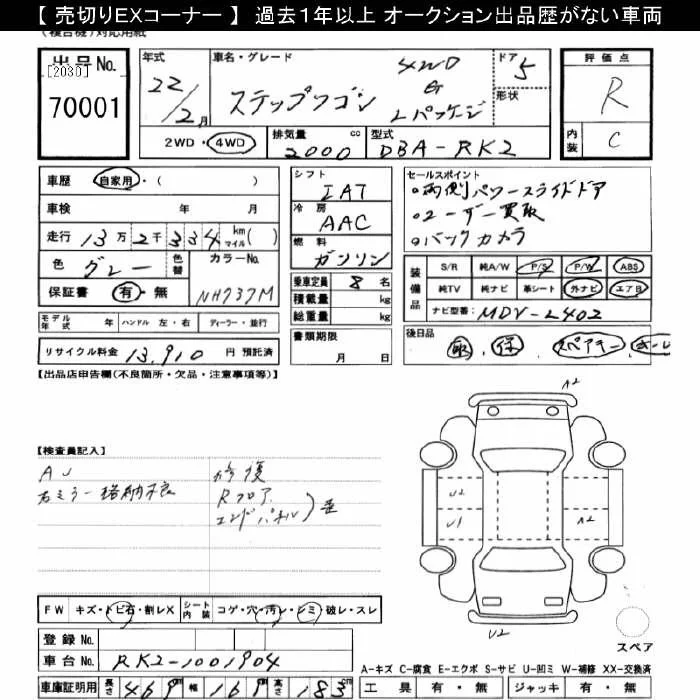 【 売切りEXコーナー 】 過去１年以上 オークション出品歴がない車両
(複合機)対応用紙
出品No.
[2030]
70001
年式
22/2月
車名・グレード
ステップワゴン
4WD
G
Lパッケージ
ドア
5
形状
評価点
R
内装
C
2WD・4WD
排気量
2000 cc
型式
DBA-RK2
車歴
自家用・( )
車検 年 月
走行 13万2千334 km マイル( )
色 グレー 色替
カラーNo. NH737M
保証書 有・無
シフト
IAT
冷房
AAC
燃料
ガソリン
乗車定員 8 名
積載量 kg
総重量 kg
セールスポイント
○両側パワースライドドア
○ユーザー買取
○バックカメラ
装備品
S/R 純A/W P/S P/W ABS
純TV 純ナビ 革シート 外ナビ エアB
ナビ型番: MDV-L402
モデル年式 年 ハンドル 左・右 ディーラー・並行
リサイクル料金 13,910 円 預託済
書類期限
月 日
後日品
取、保、スペアキー、
【出品店申告欄(不良箇所・欠品・注意事項等)】
【検査員記入】
AJ
右ミラー格納不良
修復
Rフロア
エンドパネル
A2
U2
U1
A2
U2
スペア
FW キズ・トビ石・割レX
シート内装 コゲ・穴・汚レ・シミ・破レ・スレ
登録 No.
車台 No. RK2-1001904
車庫証明用 長さ 469 巾 169 高さ 183 cm
A-キズ C-腐食 E-エクボ S-サビ U-凹ミ W-補修 XX-交換済
工具 有・無 ジャッキ 有・無